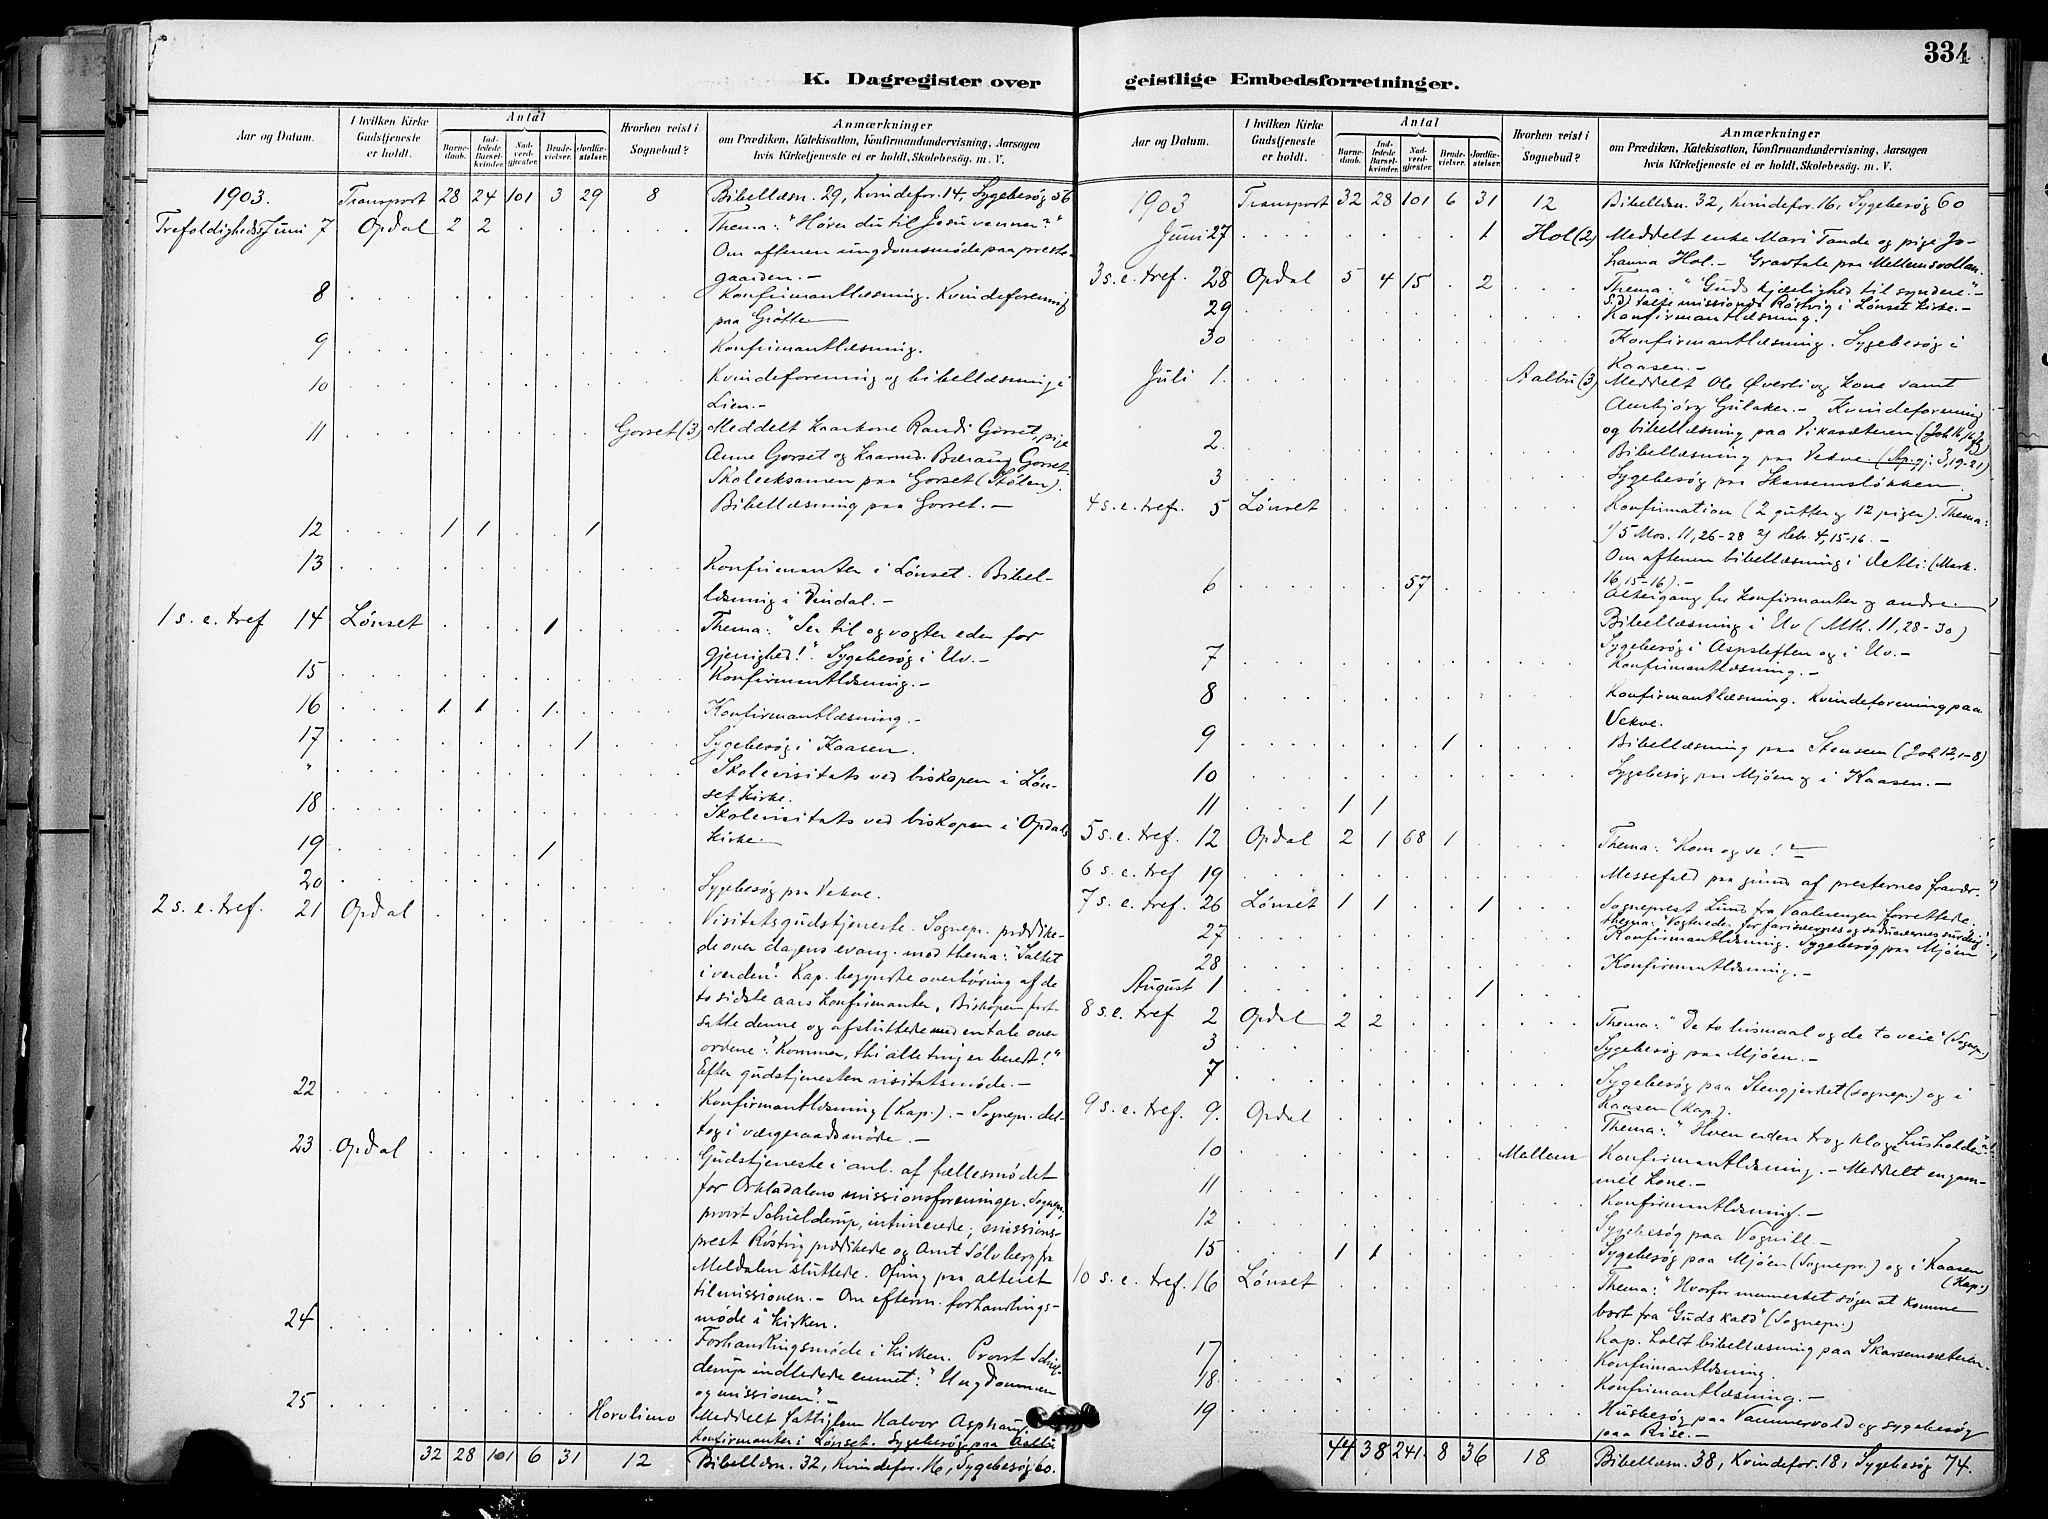 334
K. Dagregister over
Aar og Datum.
I hvilken Kirke Gudstjeneste er holdt.
Antal
Barnedaab.
Indledede Barselkvinder.
Nadverdgjester.
Brudevielser.
Jordfæstelser.
Hvorhen reist i Sognebud?
Anmærkninger
om Prædiken, Katekisation, Konfirmandundervisning, Aarsagen
hvis Kirketjeneste ei er holdt, Skolebesøg. m. V.
1903. Transport 28 24 101 3 29 8 Bibellæsn. 29, Kvindefor. 14, Sygebesøg 56
Trefoldigheds Juni 7 Opdal 2 2 Thema: "Hører du til Jesu venner?"
Om aftenen ungdomsmøde paa preste-
gaarden.-
8 Konfirmantlæsning. Kvindeforening
paa Grøtte
9 Konfirmantlæsning.
10 Kvindeforening og bibellæsning i
Lien.-
11 Gorset (3) Meddelt kaarkone Randi Gorset, pige
Anne Gorset og kaarmd. Gorset.
Skoleeksamen paa Gorset (Stølen).
Bibellæsning paa Gorset.-
12 1 1 1
13 Konfirmanter i Lønset. Bibel-
læsning i Vindal.-
1 s. e. tref 14 Lønset 1 Thema: "Ser til og vogter eder for
gjerrighed!". Sygebesøg i Uv.-
15 Konfirmantlæsning.-
16 1 1 1 Konfirmantlæsning.-
17 1 Sygebesøg i Kaasen.
" Skolevisitats ved biskopen i Løn-
set kirke.
18 Skolevisitats ved biskopen i Opdals
kirke.
19 1
20 Sygebesøg paa Vekve.
2 s. e. tref. 21 Opdal Visitatsgudstjeneste. Sognepr. prædike-
de over dagens evang. med thema: "Saltet
i verden". Kap. begyndte overhøring af de
to sidste aars konfirmanter. Biskopen fort-
satte denne og afsluttede med en tale over
ordene: "Kommer, thi alle ting er beredt!"
Efter gudstjenesten visitatsmøde.-
22 Konfirmantlæsning (Kap.).- Sognepr. del-
tog i værgeraadsmøde.-
23 Opdal Gudstjeneste i anl. af fællesmødet
for Orkladalens missionsforeninger. Sognepr.,
provst Schielderup, intimerede; missions-
prest Røstvig prædikede og Amt Sølvberg fra
Meldalen sluttede. Ofring paa alteret
til missionen.- Om efterm. forhandlings-
møde i kirken.
24 Forhandlingsmøde i kirken. Provst Schiel-
derup indledede emnet: "Ungdommen
og missionen".-
25 Meddelt fattiglem Halvor Asphaug
Konfirmanter i Lønset. Sygebesøg paa Aalbu
32 28 101 6 31 12 Bibellæsn. 32, Kvindefor. 16, Sygebesøg 60.
geistlige Embedsforretninger.
Aar og Datum.
I hvilken Kirke Gudstjeneste er holdt.
Antal
Barnedaab.
Indledede Barselkvinder.
Nadverdgjester.
Brudevielser.
Jordfæstelser.
Hvorhen reist i Sognebud?
Anmærkninger
om Prædiken, Katekisation, Konfirmandundervisning, Aarsagen
hvis Kirketjeneste ei er holdt, Skolebesøg. m. V.
1903 Transport 32 28 101 6 31 12 Bibellæsn. 32, Kvindefor. 16, Sygebesøg 60
Juni 27 1 Hol (2) Meddelt enke Mari Tande og pige Jo-
hanna Hol.- Gravtale paa Mellemsvollan.
3 s. e. tref. 28 Opdal 5 4 15 2 Thema: "Guds kjærlighed til syndere."-
S.D. talte missionspr. Røstvig i Lønset kirke.-
29 Konfirmantlæsning.
30 Konfirmantlæsning. Sygebesøg i
Kaasen.-
Juli 1. Aalbu (3) Meddelt Ole Øverli og kone samt
Ambjørg Gulaker.- Kvindeforening
og bibellæsning paa Vikasæteren
2. Bibellæsning paa Vekve. (Ap. gj. 3, 19-21)
3 Sygebesøg paa Skarsemsløkken.
4 s. e. tref. 5 Lønset Konfirmation (2 gutter og 12 piger). Thema:
1) 5 Mos. 11, 26-28 2) Hebr. 4, 15-16.-
Om aftenen bibellæsning i Detli. (Mark.
16, 15-16).-
6 57 Altergang for konfirmanter og andre.
Bibellæsning i Uv (Mth. 11, 28-30)
7 Sygebesøg i Aspsleften og i Uv.-
Konfirmantlæsning.-
8 Konfirmantlæsning. Kvindeforening paa
Vekve.
9 1 Bibellæsning paa Stensem (Joh 12, 1-8)
10 Sygebesøg paa Mjøen og i Kaasen.-
11 1 1
5 s. e. tref. 12 Opdal 2 1 68 1 Thema: "Kom og se!"-
6 s. e. tref 19 Messefald paa grund af presternes fravær.
7 s. e. tref. 26 Lønset 1 1 1 Sogneprest Lund fra Vaalerengen forrettede.
Thema: "Vogt eder for farisæernes og sadukæernes surdeig!"
27 Konfirmantlæsning. Sygebesøg paa Mjøen
28 Konfirmantlæsning.-
August 1 1
8 s. e. tref 2 Opdal 2 2 Thema: "De to livsmaal og de to veie" (Sognepr.)
3 Sygebesøg paa Mjøen.-
7 Sygebesøg paa Stengjerdet (sognepr.) og i
Kaasen (Kap).
9 s. e. tref. 9. Opdal Thema: "Hvem er den tro og kloge husholder"
10 Mellem Konfirmantlæsning.- Meddelt en gam-
mel kone.-
11 Konfirmantlæsning.-
12 Sygebesøg paa Vognill.-
15 1 1 Sygebesøg paa Mjøen (Sognepr.) og i Kaasen
(Kap.)
10 s. e. tref. 16 Lønset Thema: "Hvorfor mennesket søger at komme
bort fra Guds kald" (Sognepr.)
Kap. holdt bibellæsning paa Skarsemsæteren.
17 Konfirmantlæsning.
18. Konfirmantlæsning.-
19 Husbesøg paa Vammervold og sygebesøg
paa Rise.-
44 38 241. 8 36 18 Bibellæsn. 38, Kvindefor. 18, Sygebesøg 74.